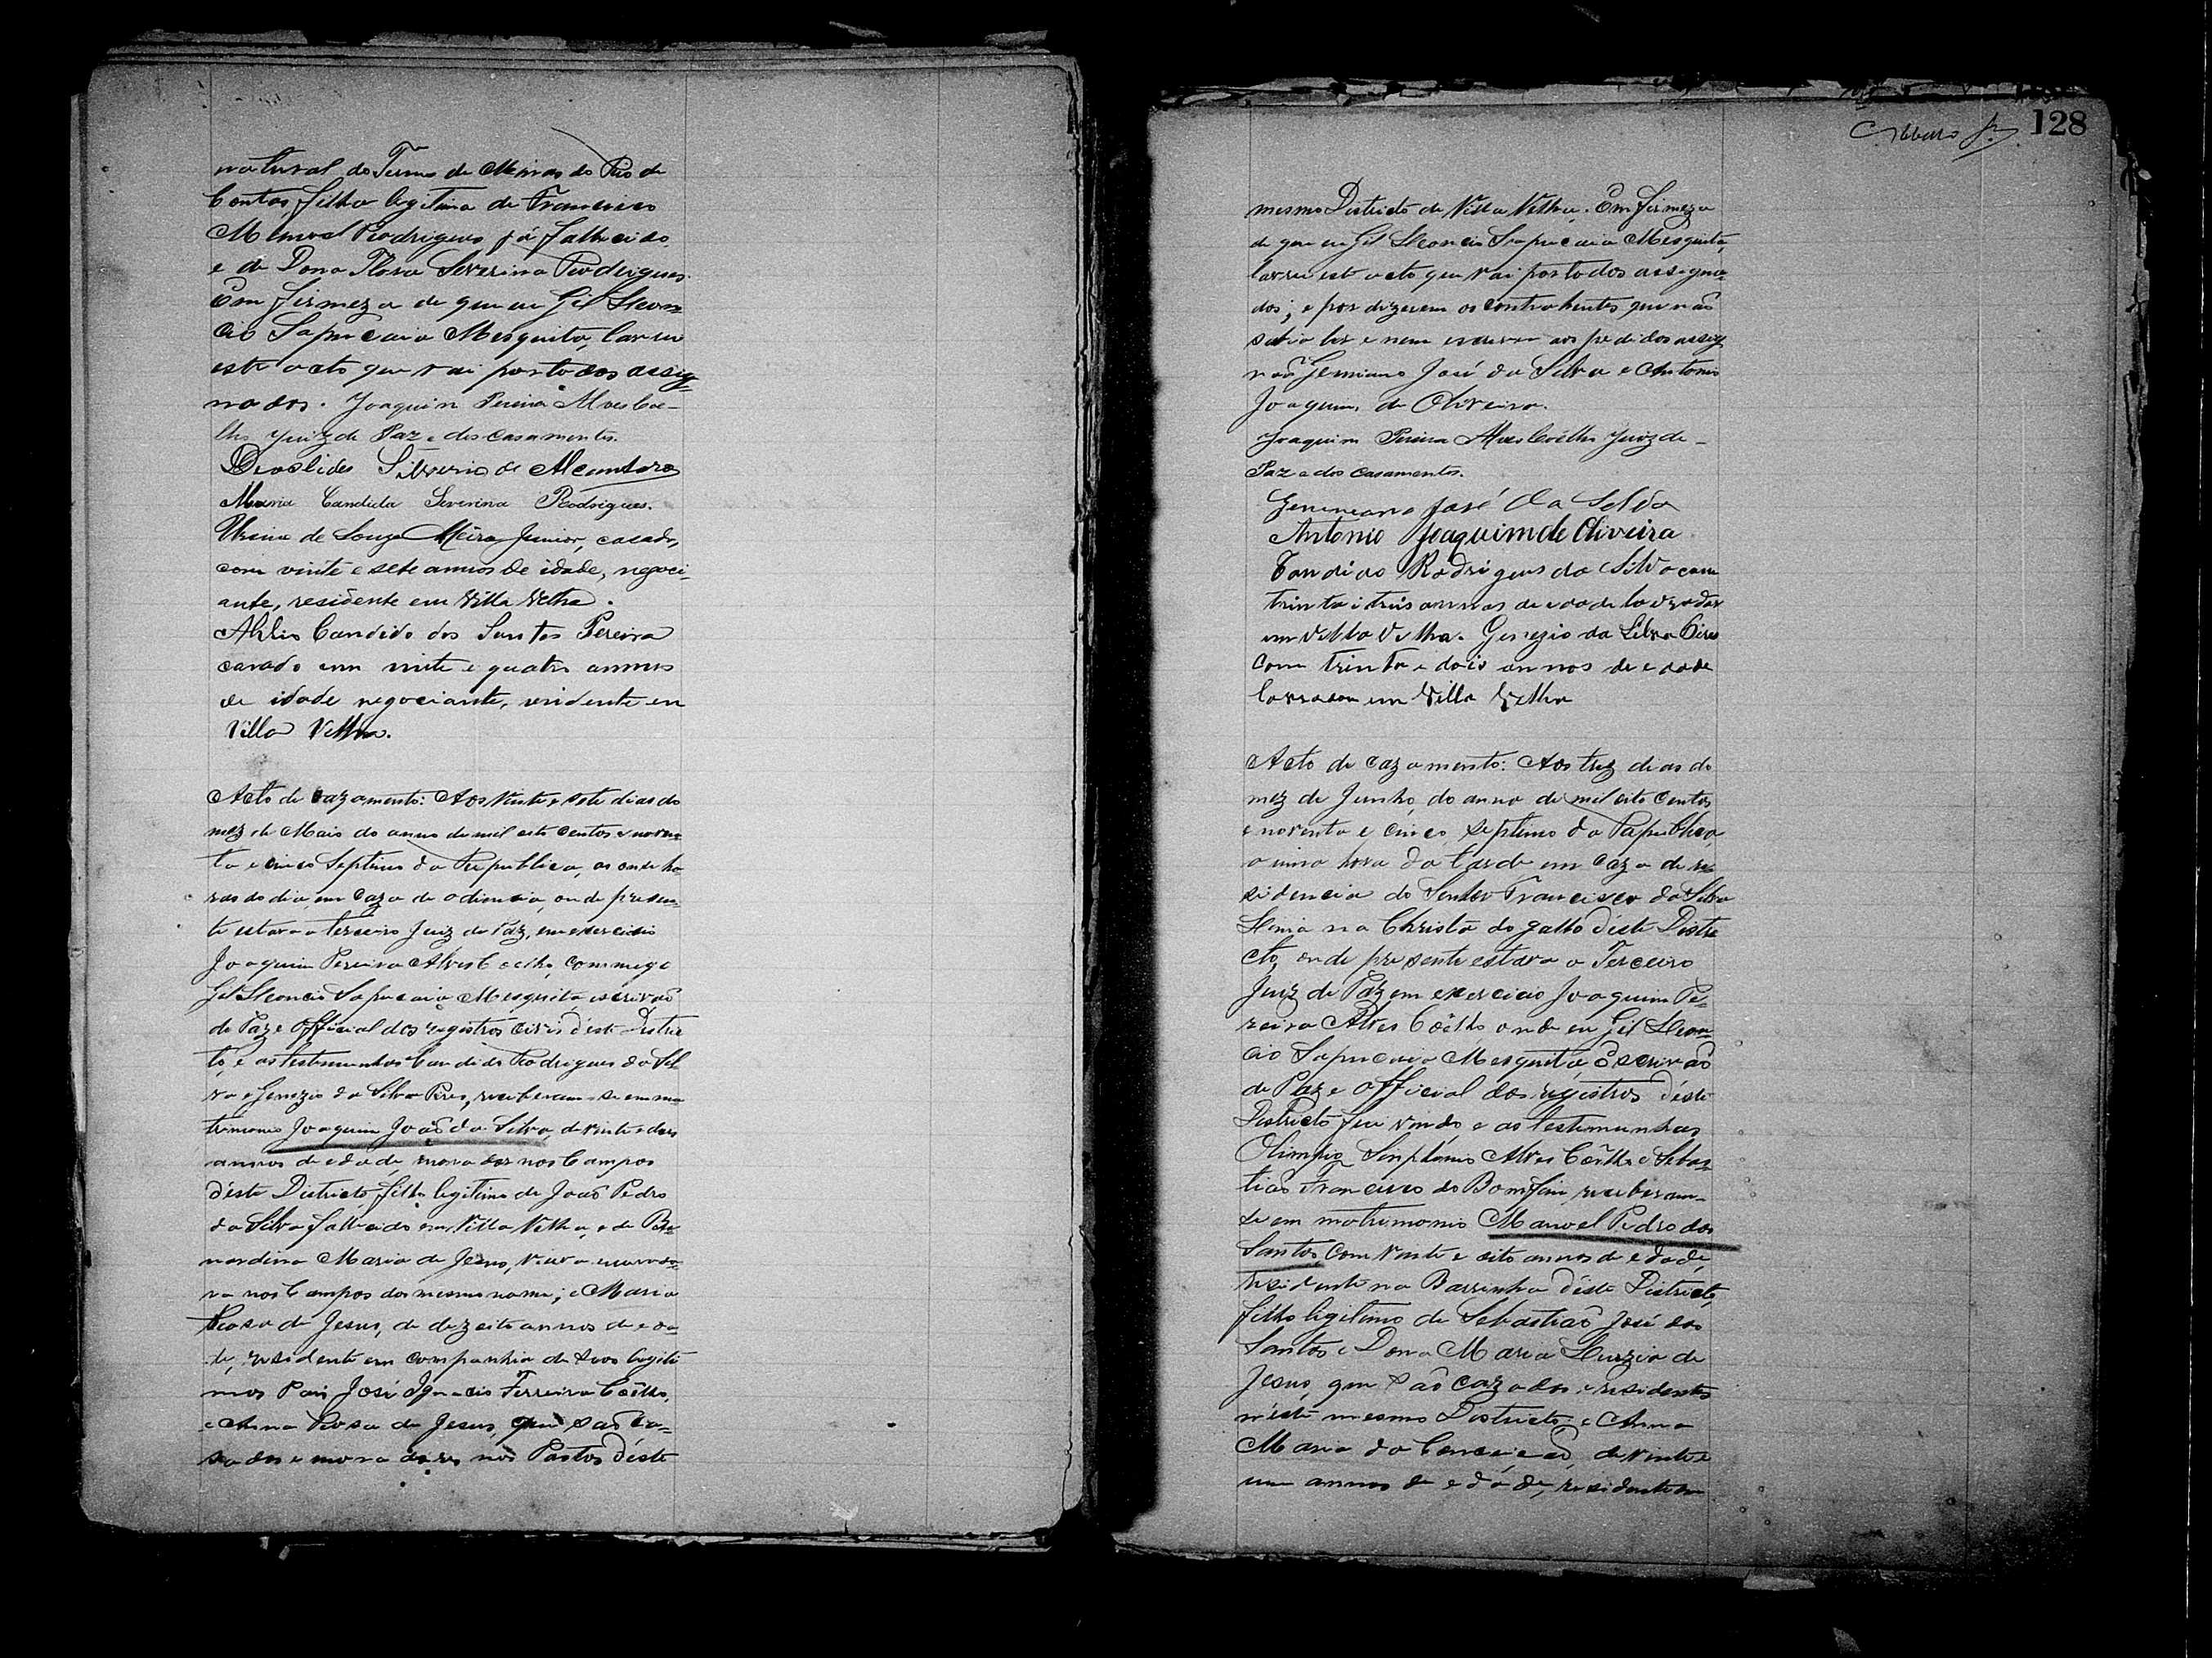 natural do Termo de Minas do Rio de
Contas, filha legitima de Francisco
Manoel Rodrigues já fallecido,
e de Dona Flora Severina Rodrigues.
Em firmeza de que eu Gil Leon=
cio Sapucaia Mesquita, lavrei
este acto que vai por todos assig=
nados. Joaquim Pereira Alves Coe-
lho Juiz de Paz e dos Casamentos.
Silverio de Alcantara
Maria Candida Severina Rodrigues.
de Souza Meira Junior, casado,
com vinte e sete annos de idade, negoci-
ante, residente em Villa Velha.
Candido dos Santos Pereira
casado com vinte e quatro annos
de idade negociante, residente em
Villa Velha.
Acto de cazamento: Aos Vinte e sete dias do
mez de Maio do anno de mil oito Centos e noven-
ta e cinco Septimo da Republica, as onze ho-
ras do dia, em Caza de odiencia, onde presen-
te estava o terceiro Juiz de Paz, em exercicio
Joaquim Pereira Alves Coelho, commigo
Gil Leoncio Sapucaia Mesquita escrivaõ
de Paz e Official dos registros civis d'este Distric
to, e as testemunhas Candido Rodrigues da Sil
va e Genezio da Silva Pires, receberam-se em ma
trimonio Joaquim Joaõ da Silva, de vinte e dous
annos de edade, morador nos Campos
d'este Districto, filho legitimo de Joaõ Pedro
da Silva fallecido em Villa Velha, e de Ber
nardina Maria de Jesus, Viuva morado-
ra nos Campos do mesmo nome; e Maria
Roza de Jesus, de dezoito annos de eda-
de, residente em companhia de seos legiti
mos Pais José Ignacio Ferreira Coêlho,
e Anna Rosa de Jesus, que saõ ca=
sados e moradores nos Pastos d'este
128
mesmo Districto de Villa Velha. Em firmeza
de que eu Gil Leoncio Sapucaia Mesquita,
lavrei este acto que vai por todos assigna-
dos; e por dizerem os contrahentes que naõ
sabia ler e nem escrever aos pedidos assig
naõ Geminiano José da Silva e Antonio
Joaquim de Oliveira.
Joaquim Pereira Alves Coêlho Juiz de -
Paz e dos Casamentos.
Geminiano José da Silva
Antonio Joaquim de Oliveira
Candido Rodrigues da Silva com
trinta i treis annos de edade lavrador
em Villa Velha. Genezio da Silva Pires
com trinta e dois annos de edade
lavrador em Villa Velha
Acto de cazamento: Aos trez dias do
mez de Junho do anno de mil oito Centos
e noventa e cinco, septimo da Republica,
a uma hora da tarde em Caza de re-
sidencia do Senhor Francisco da Silva
na Christa do galho d'este Distri
cto, onde presente estava o Terceiro
Juiz de Paz em exercicio Joaquim Pe=
reira Alves Coêlho onde eu Gil Leon-
cio Sapucaia Mesquita, Escrivaõ
de Paz e Official dos registros d'este
Districto fui vindo e as testemunhas
Olimpio Alves Coêlho e Sebas=
tiaõ Francisco do Bomfim receberam-
se em matrimonio Manoel Pedro dos
Santos, com vinte e oito annos de edade,
residente na Barrinha d'este Districto,
filho legitimo de Sebastiaõ José dos
Santos e Dona Maria Luzia de
Jesus, que saõ cazados e residentes
n'este mesmo Districto; e Anna
Maria da Conceiçaõ, de vinte e
um annos de edade, residente em